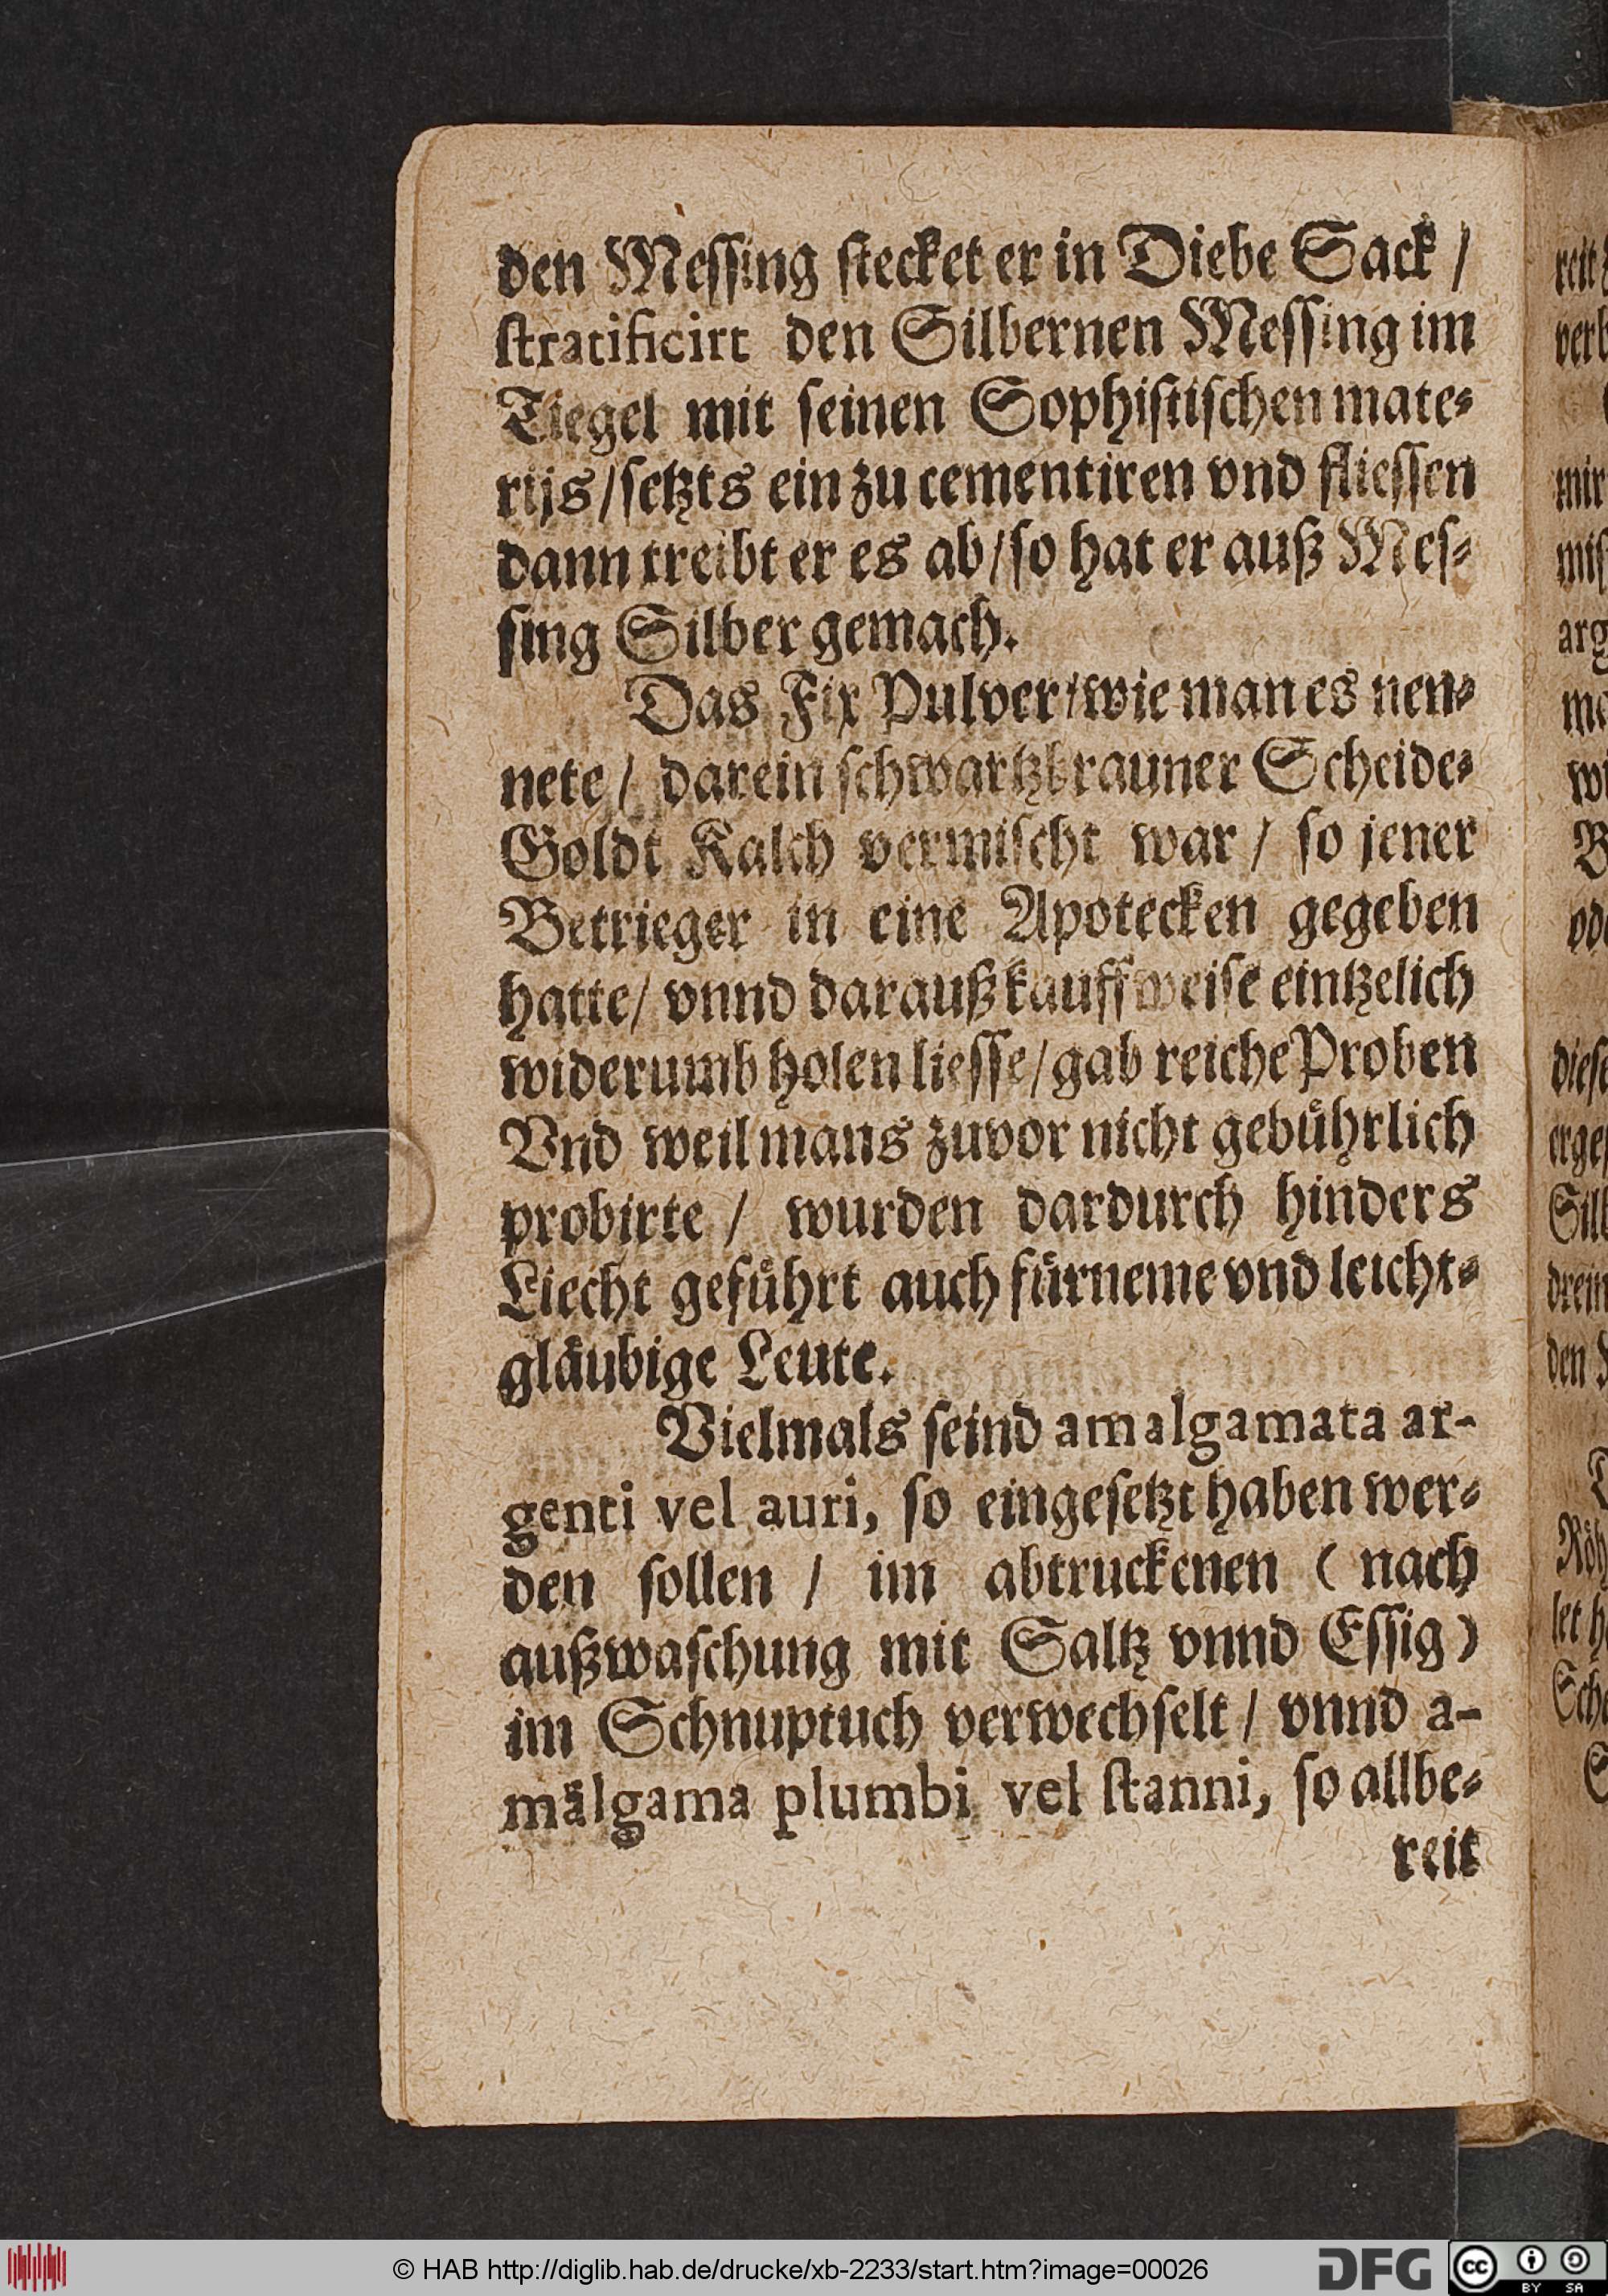 den Meſſing ſtecket er in Diebe Sack /
ſtratificirt den Silbernen Meſſing im
Tiegel mit ſeinen Sophiſtiſchen mate⸗
rijs / ſetzts ein zu cementiren vnd flieſſen
dann treibt er es ab / ſo hat er auß Meſ⸗
ſing Silber gemach.
Das Fix Pulver / wie man es nen⸗
nete / darein ſchwartzbrauner Scheide⸗
Goldt Kalch vermiſcht war / ſo jener
Betrieger in eine Apotecken gegeben
hatte / vnnd darauß kauffweiſe eintzelich
widerumb holen lieſſe / gab reiche Proben
Vnd weil mans zuvor nicht gebuͤhrlich
probirte / wurden dardurch hinders
Liecht gefuͤhrt auch fuͤrneme vnd leicht⸗
glaͤubige Leute.
Vielmals ſeind amalgamata ar-
genti vel auri, ſo eingeſetzt haben wer⸗
den ſollen / im abtruckenen ( nach
außwaſchung mit Saltz vnnd Eſſig )
im Schnuptuch verwechſelt / vnnd a-
mälgama plumbi vel ſtanni, ſo allbe⸗
reit
© HAB http://diglib.hab.de/drucke/xb-2233/start.htm?image=00026
DFG
cc
BY SA